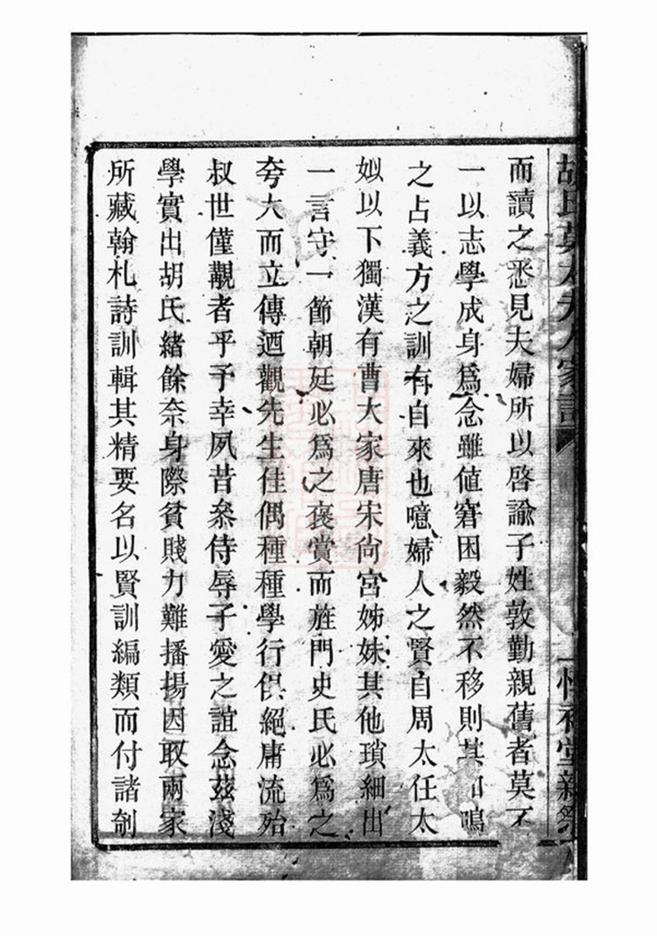 胡氏莫太夫人家訓
而讀之悉見夫婦所以啓諭子姓敦勤親舊者莫不
一以志學成身爲念雖値窘困毅然不移則其和鳴
之占義方之訓有自來也噫婦人之賢自周太任太
姒以下獨漢有曹大家唐宋尚宮姊妹其他瑣細出
一言守一節朝廷必爲之褒賞而旌門史氏必爲之
夸大而立傳迺觀先生佳偶種種學行俱絕庸流殆
叔世僅覯者乎予幸夙昔叅侍辱子愛之誼念茲淺
學實出胡氏緒餘奈身際貧賤力難播揚因取兩家
所藏翰札詩訓輯其精要名以賢訓編類而付諸剞